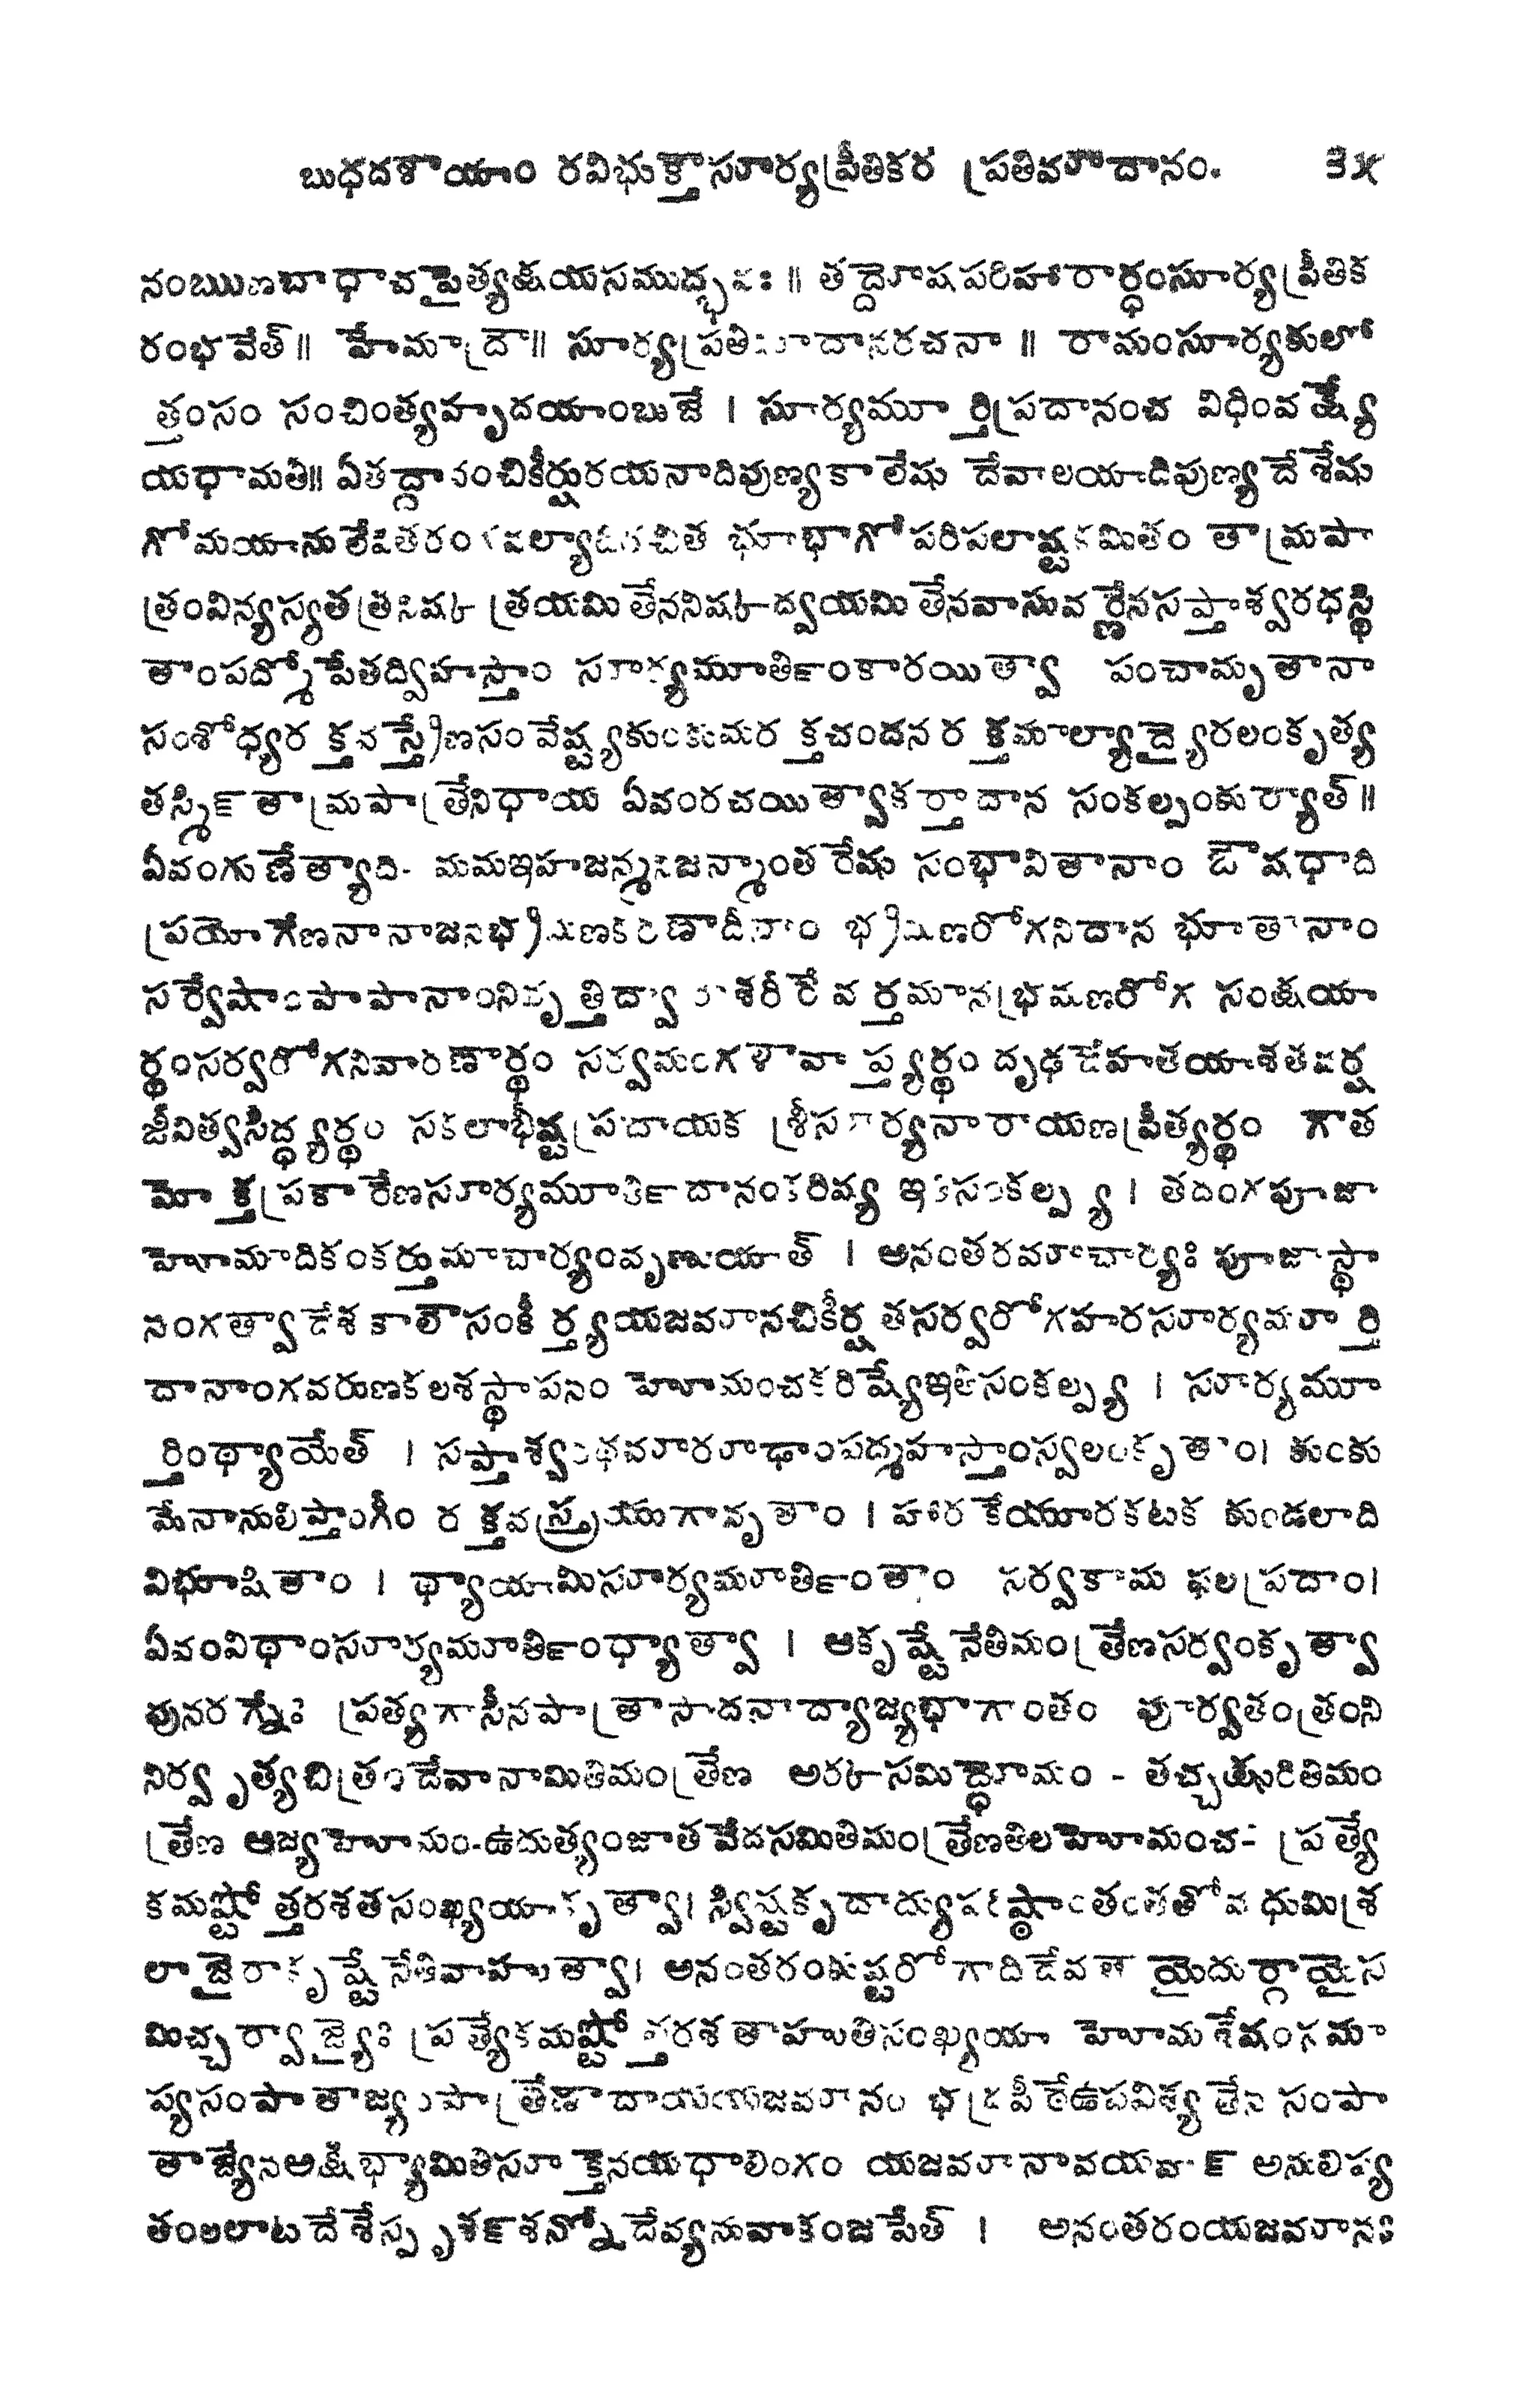 బుధదశాయాం రవిభుక్తౌసూర్యప్రీతికర ప్రతిమాదానం. ౩౫
నంఋణబాధాచపైత్యక్షయసముద్భవః ॥ తద్దోషపరిహారార్ధంసూర్యప్రీతిక
రంభవేత్ ॥ హేమాద్రౌ॥ సూర్యప్రతిమాదానరచనా ॥ రామంసూర్యకులో
త్తంసం సంచింత్యహృదయాంబుజే । సూర్యమూర్తిప్రదానంచ విధింవక్ష్యే
యధామతి॥ ఏతద్దానంచికీర్షురయనాదిపుణ్యకాలేషు దేవాలయాదిపుణ్యదేశేషు
గోమయానులేపితరంగవల్యాదిరచిత భూభాగోపరిపలాష్టకమితం తామ్రపా
త్రంవిన్యస్యతత్రనిష్క త్రయమితేననిష్కద్వయమితేనవాసువర్ణేనసప్తాశ్వరధస్థి
తాంపద్మోపేతద్విహస్తాం సూర్యమూర్తింకారయిత్వా పంచామృతానా
సంశోధ్యరక్తవస్త్రేణసంవేష్ట్యకుంకుమరక్తచందనరక్తమాల్యాద్యైరలంకృత్య
తస్మిన్ తామ్రపాత్రేనిధాయ ఏవంరచయిత్వాకర్తాదాన సంకల్పంకుర్యాత్ ॥
ఏవంగుణేత్యాది- మమఇహజన్మనిజన్మాంతరేషు సంభావితానాం ఔషధాది
ప్రయోగేణనానాజనభ్రమణకరణాదీనాం భ్రమణరోగనిదాన భూతానాం
సర్వేషాంపాపానాంనివృత్తిద్వారాశరీరేవర్తమానభ్రమణరోగ సంక్షయా
ర్థంసర్వరోగనివారణార్థం సర్వమంగళావాప్త్యర్థం దృఢదేహతయాశతవర్ష
జీవిత్వసిద్ధ్యర్థం సకలాభీష్టప్రదాయక శ్రీసూర్యనారాయణప్రీత్యర్థం గౌత
మోక్తప్రకారేణసూర్యమూర్తిదానంకరిష్య ఇతిసంకల్ప్య । తదంగపూజా
హోమాదికంకర్తుమాచార్యంవృణుయాత్ । అనంతరమాచార్యః పూజాస్థా
నంగత్వాదేశకాలౌసంకీర్త్యయజమానచికీర్షితసర్వరోగహరసూర్యమూర్తి
దానాంగవరుణకలశస్థాపనం హోమంచకరిష్యేఇతిసంకల్ప్య । సూర్యమూ
ర్తింధ్యాయేత్ । సప్తాశ్వరథమారూఢాంపద్మహస్తాంస్వలంకృతాం। కుంకు
మేనానులిప్తాంగీం రక్తవస్త్రయుగావృతాం । హారకేయూరకటక కుండలాది
విభూషితాం । ధ్యాయామిసూర్యమూర్తింతాం సర్వకామ ఫలప్రదాం।
ఏవంవిధాంసూర్యమూర్తింధ్యాత్వా । ఆకృష్ణేనేతిమంత్రేణసర్వంకృత్వా
పునరగ్నేః ప్రత్యగాసీనపాత్రాసాదనాద్యాజ్యభాగాంతం పూర్వతంత్రంని
నిర్వృత్యచిత్రందేవానామితిమంత్రేణ అర్కసమిద్ధోమం - తచ్చక్షురితిమం
త్రేణ ఆజ్యహోమం-ఉదుత్యంజాతవేదసమితిమంత్రేణతిలహోమంచ- ప్రత్యే
కమష్టోత్తరశతసంఖ్యయాకృత్వా। స్విష్టకృదాద్యుపస్థాంతంతతోమధుమిశ్ర
లాజైరాకృష్ణేనేతివాహుత్వా। అనంతరంకుష్టరోగాదిదేవతాయైదుర్గాయైస
మిచ్చర్వాజ్యైః ప్రత్యేకమష్టోత్తరశతాహుతిసంఖ్యయా హోమశేషంసమా
ప్యసంపాతాజ్యంపాత్రేణాదాయయజమానం భద్రపీఠేఉపవిశ్యతేన సంపా
తాజ్యేనఅక్షీభ్యామితిసూక్తేనయధాలింగం యజమానావయవాన్ అనులిప్య
తంలలాటదేశేస్పృశన్‌శన్నోదేవ్యనువాకంజపేత్ । అనంతరంయజమానః